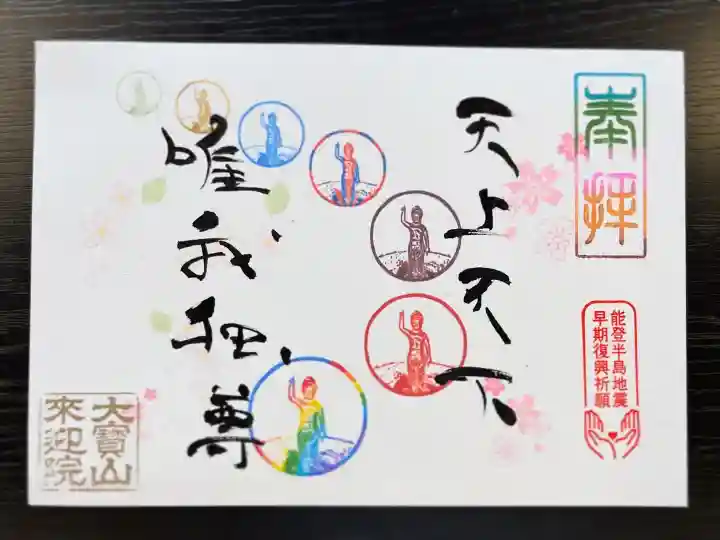 奉拝
能登半島地震
早期復興祈願
天上天下
唯我独尊
大寶山
來迎院